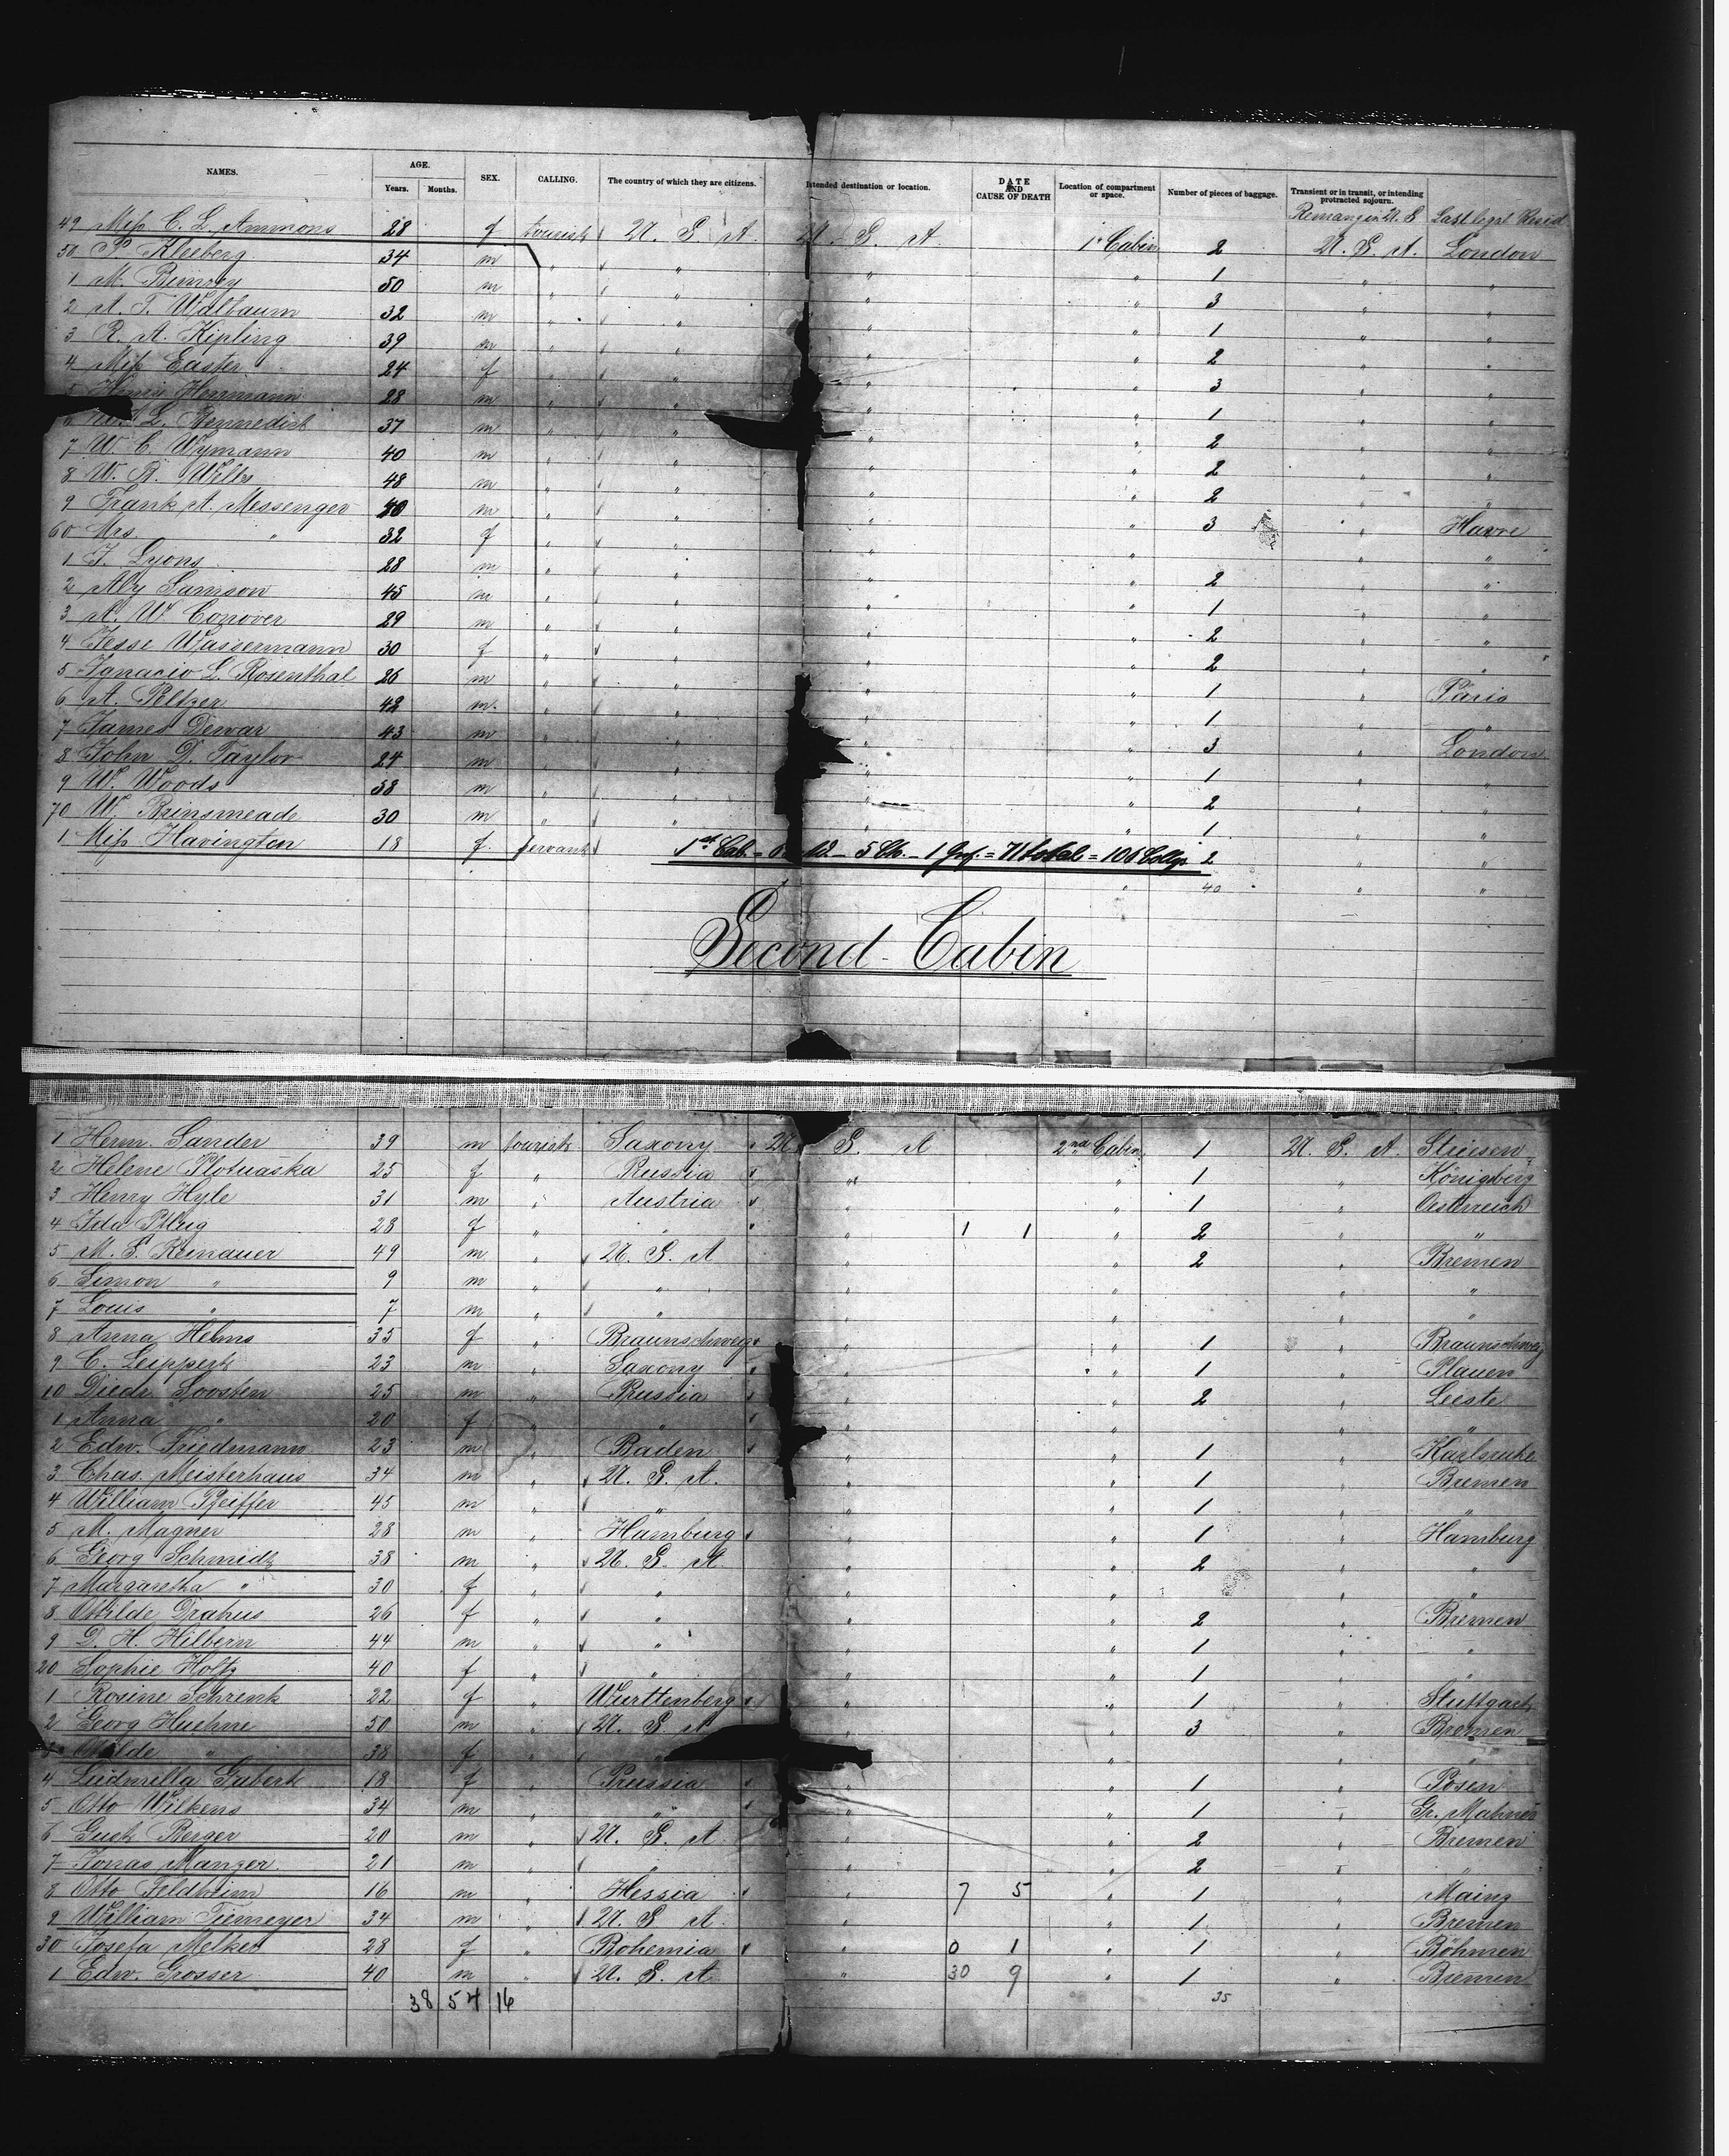 NAMES. AGE. Years. Months. SEX. CALLING. The country of which they are citizens. Intended destination or location. DATE AND CAUSE OF DEATH Location of compartment or space. Number of pieces of baggage. Transient or in transit, or intending protracted sojourn.
49 Miss C. L. Ammons 28 f tourist U. S. A. U. S. A. 1st Cabin 2 U. S. A. London
50 P. Kleeberg 34 m " " " " 1 " "
1 M. 50 m " " " " 3 " "
2 A. T. Walbaum 32 m " " " " 1 " "
3 R. A. Kipling 39 m " " " " 2 " "
4 Miss Easter 24 f " " " " 3 " "
5 Herrmann 28 m " " " " 1 " "
6 L. Bennedict 37 m " " " " 2 " "
7 W. C. Wymann 40 m " " " " 2 " "
8 W. R. Wells 48 m " " " " 2 " "
9 Frank A. Messenger 40 m " " " " 3 " Havre
60 Mrs " 32 f " " " " " "
1 F. Lyons 28 m " " " " 2 " "
2 Aly Samson 45 m " " " " 1 " "
3 A. W. Conover 29 m " " " " 2 " "
4 Jesse Wassermann 30 f " " " " 2 " "
5 Ignacio L. Rosenthal 26 m " " " " 1 " Paris
6 A. Peltzer 42 m " " " " 1 " "
7 James Dewar 43 m " " " " 3 " London
8 John D. Taylor 24 m " " " " 1 " "
9 W. Woods 38 m " " " " 2 " "
70 W. Brinsmeade 30 m " " " " 1 " "
1 Miss Havington 18 f servant 2 " "
1st Cab. = 5 Ch. - 1 = 71 total = 106 Collys
" 40 " "
Second-Cabin
1 Herm. Sander 39 m tourist Saxony U. S. A 2nd Cabin 1 U. S. A. Striesen
2 Helene 25 f " Russia " " 1 " Königsberg
3 Henry Hyle 31 m " Austria " " 1 " Oesterreich
4 Ida Pflug 28 f " " " 1 1 " 2 " "
5 M. S. Kemauer 49 m " U. S. A " " 2 " Bremen
6 Simon " 9 m " " " " " "
7 Louis " 7 m " " " " " "
8 Anna Helms 35 f " Braunschweig " " 1 " Braunschweig
9 C. Leippert 23 m " Saxony " " 1 " Plauen
10 Diedr. Soosten 25 m " Prussia " " 2 " Leeste
1 Anna " 20 f " " " " " "
2 Edw. Friedmann 23 m " Baden " " 1 " Karlsruhe
3 Chas. Meisterhaus 34 m " U. S. A. " " 1 " Bremen
4 William Pfeiffer 45 m " " " " 1 " "
5 M. Magner 28 m " Hamburg " " 1 " Hamburg
6 Georg Schmidt 38 m " U. S. A " " 2 " "
7 Margaretha " 30 f " " " " " "
8 Drahus 26 f " " " " 2 " Bremen
9 D. H. Hilbern 44 m " " " " 1 " "
20 Sophie Holtz 40 f " " " " 1 " "
1 Rosine Schrenk 22 f " Württenberg " " 1 " Stuttgart
2 Georg Huehne 50 m " U. S. A " " 3 " Bremen
" 38 f " " " " " "
4 Ludmilla Gabert 18 f " Prussia " " 1 " Posen
5 Otto Wilkens 34 m " " " " 1 "
6 Gust Berger 20 m " U. S. A " " 2 " Bremen
7 Jonas Manger 21 m " " " " 2 " "
8 Otto Feldheim 16 m " Hessia " 7 5 " 1 " Mainz
9 William Tiemeyer 34 m " U. S. A " " 1 " Bremen
30 Josefa Melker 28 f " Bohemia " 0 1 " 1 " Böhmen
1 Edw. Grosser 40 m " U. S. A " 30 9 " 1 " Bremen
38 54 16 35